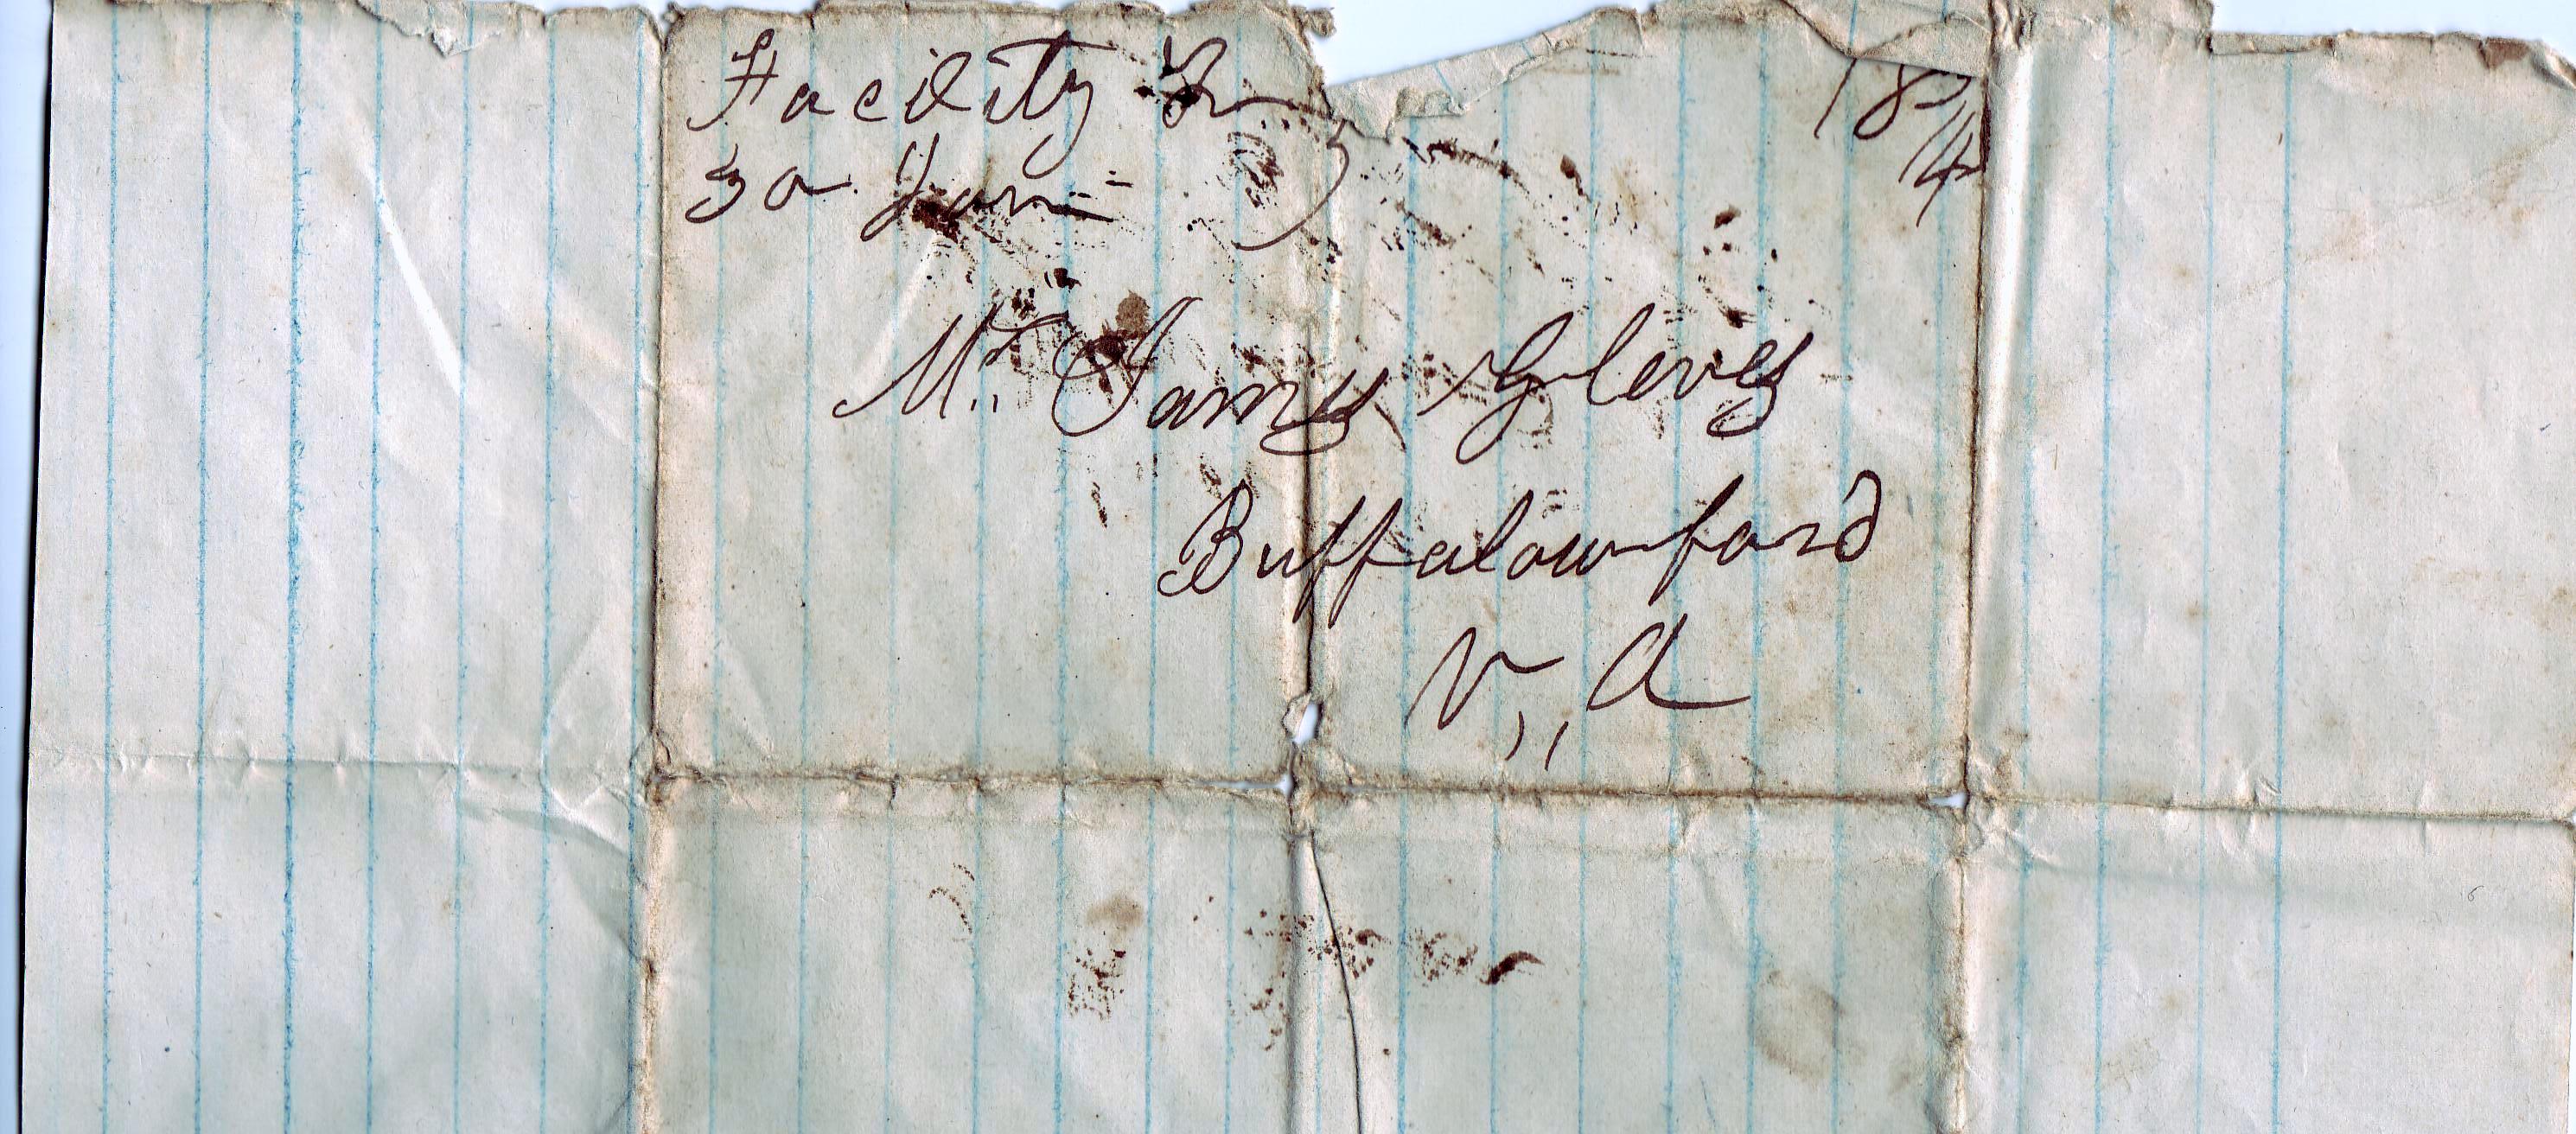 Facility
30 Jan
18
14
Mr. Jamy Glevey
Buffalowford
V,, A